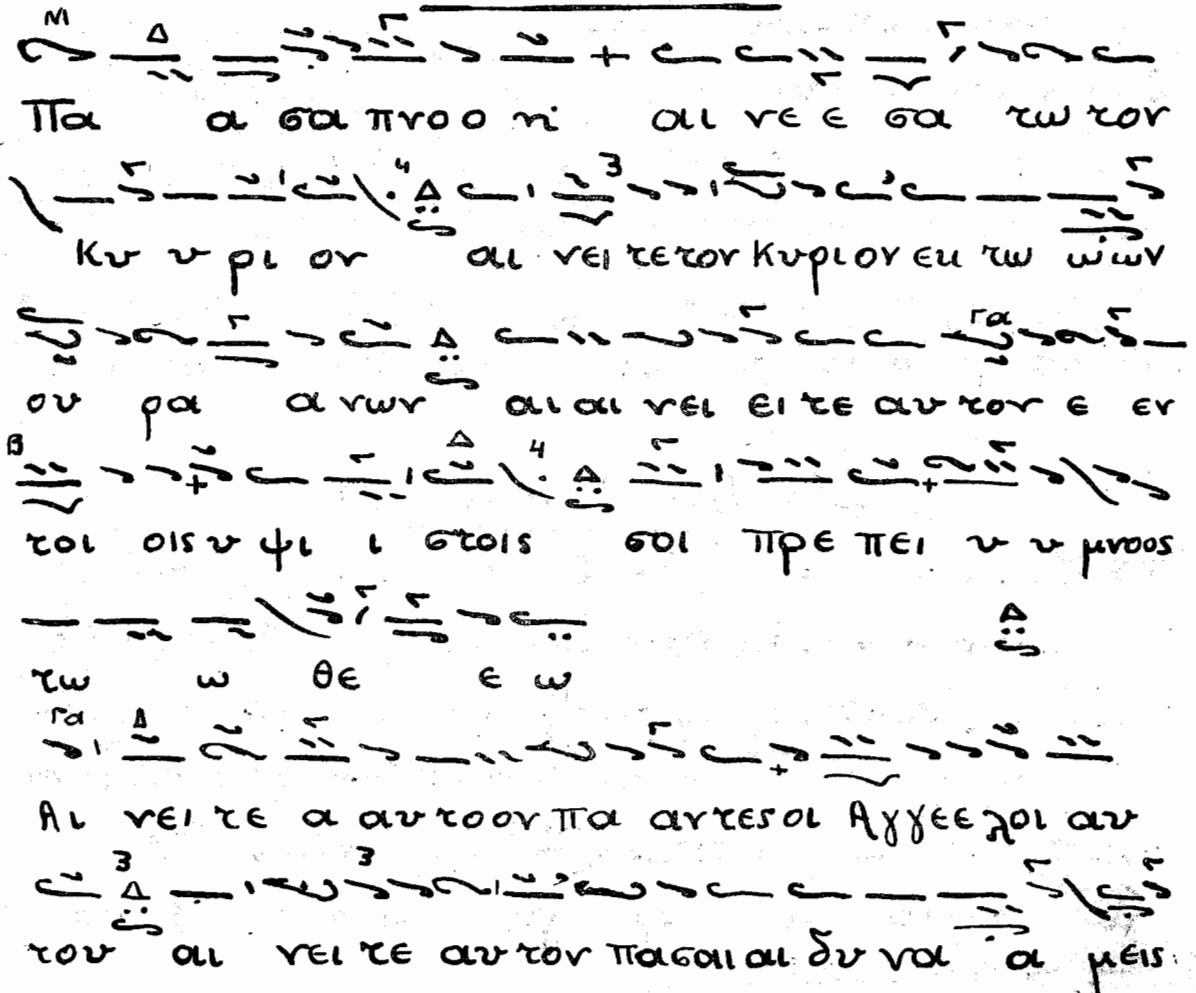 Πα α σα πνο ο η αι νε ε σα τω τον
Κυ υ ρι ον αι νει τε τον Κυριον εκ τω ω ων
ου ρα α νων αι αι νει ει τε αυ τον ε εν
τοι οις υ ψι ι στοις σοι πρε πει υ υ μνοος
τω ω θε ε ω
Αι νει τε α αυ τοον πα αντες οι Αγγεε λοι αυ
του αι νει τε αυ τον πασαι αι δυ να α μεις